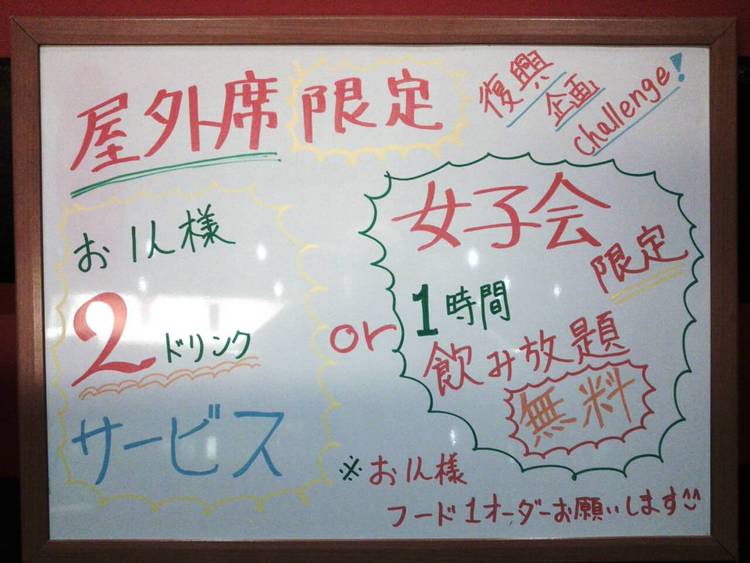 屋外席限定
復興
企画
challenge!
お1人様
2ドリンク
サービス
or
女子会
限定
1時間
飲み放題
無料
※お1人様
フード1オーダーお願いします^^